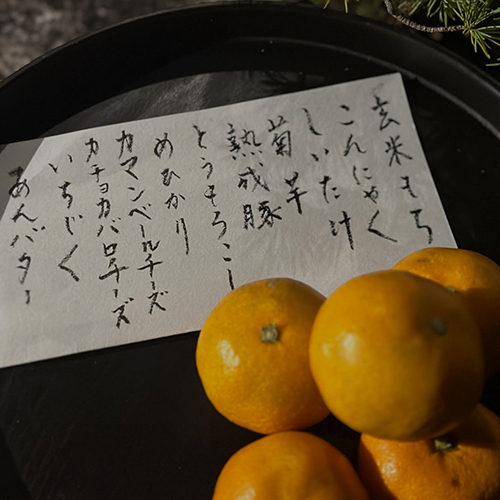 玄米もち
こんにゃく
しいたけ
菊芋
熟成豚
とうもろこし
めひかり
カマンベールチーズ
カチョカバロチーズ
いちじく
あんバター